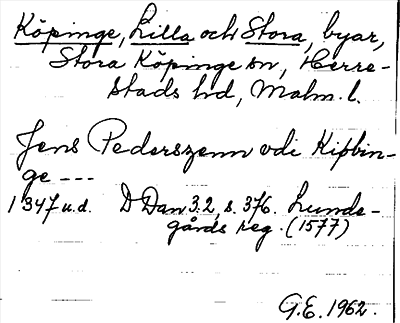 Köpinge, Lilla och Stora, byar,
Stora Köpinge sn, Herre-
stads hd, Malm. l.
Jens Pederszenn vdi Kipbin-
ge ---
1347 u.d. D Dan 3.2, s. 376. Lunde-
gårds reg. (1577)
G.E. 1962.